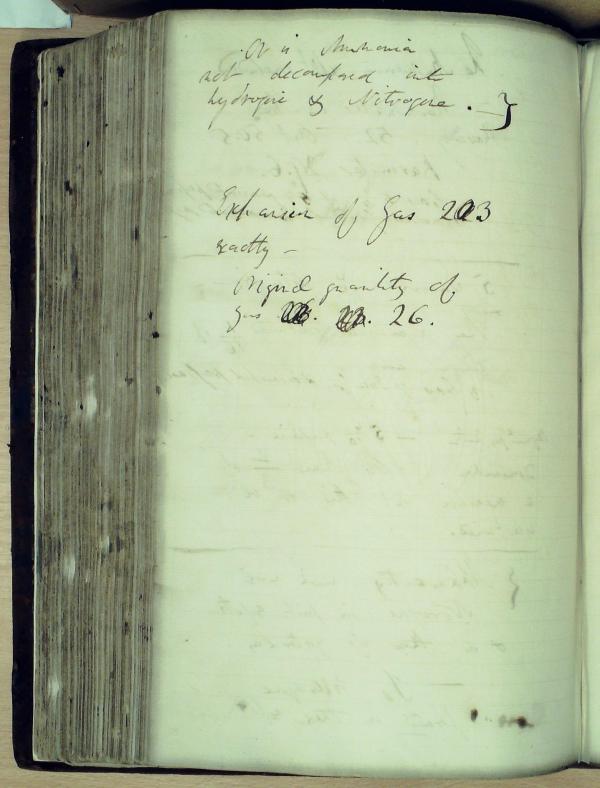 Or is Ammonia
not decomposed into
hydrogene & Nitrogene. —}
Expansion of Gas 203
exactly —
Original quantity of
gas 26.